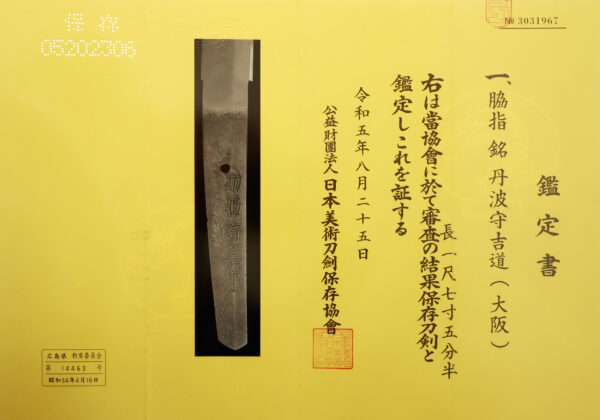 № 3031967
鑑定書
一、脇指 銘 丹波守吉道(大阪)
長一尺七寸五分半
右は當協會に於て審査の結果保存刀剣と
鑑定しこれを証する
令和五年八月二十五日
公益財團法人日本美術刀劍保存協會
保存
05202306
広島県 教育委員会
第 14463 号
昭和34年4月16日